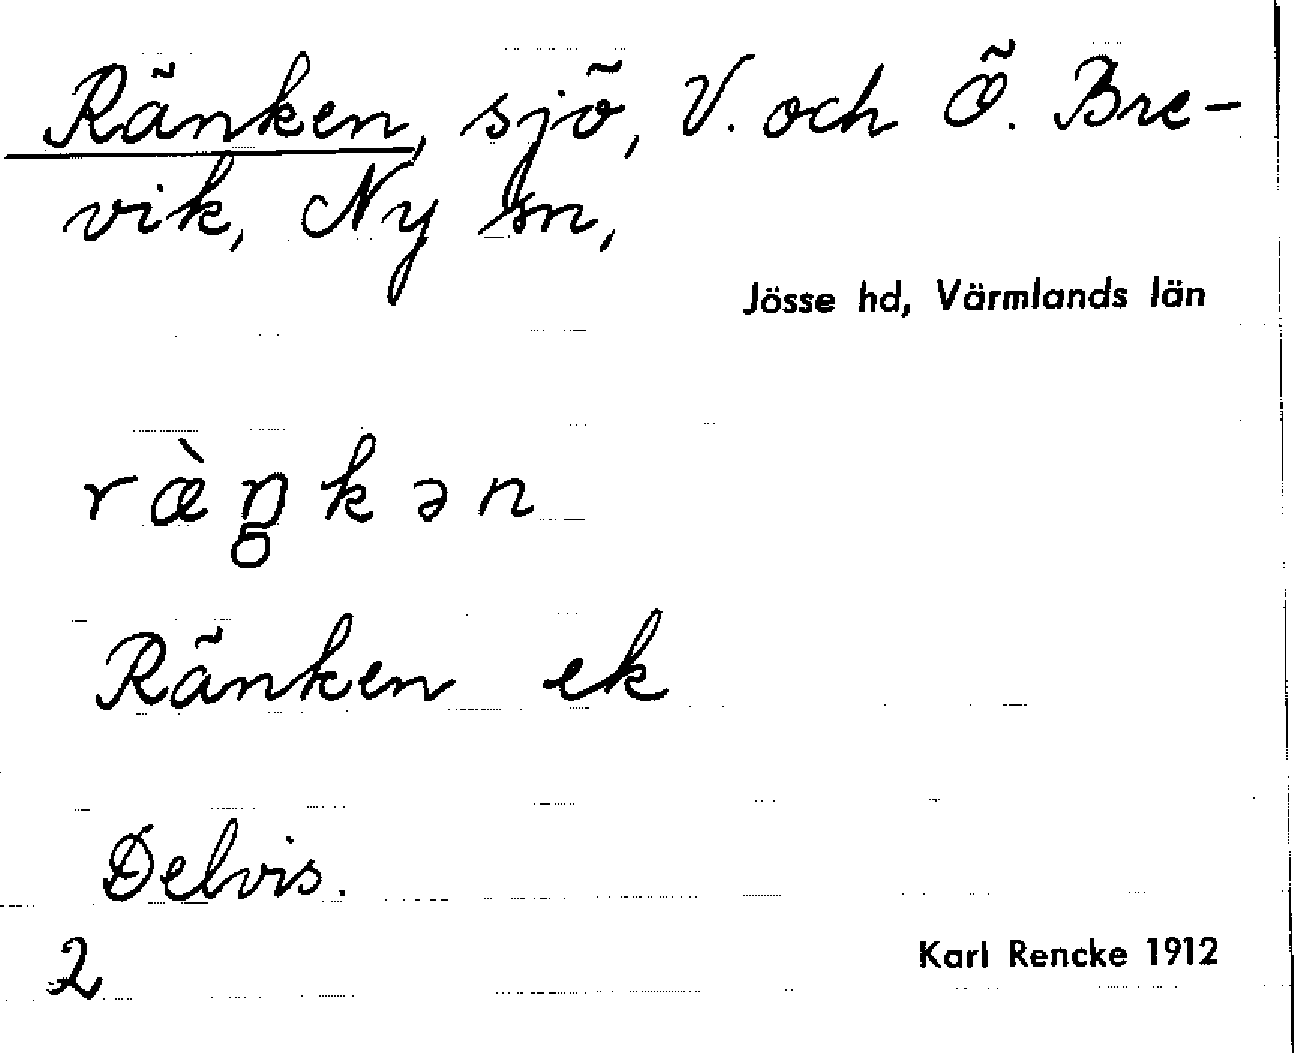 Ränken, sjö, V. och Ö. Bre-
vik, Ny sn,
Jösse hd, Värmlands län
ræ̀ŋ̥kən
Ränken ek
Delvis.
2
Karl Rencke 1912